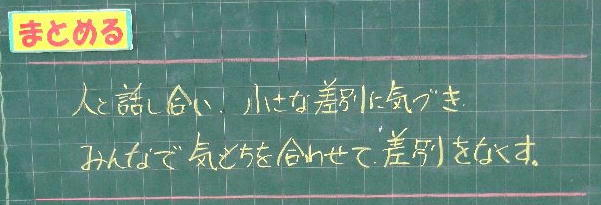 まとめる
人と話し合い、小さな差別に気づき、
みんなで気もちを合わせて、差別をなくす。